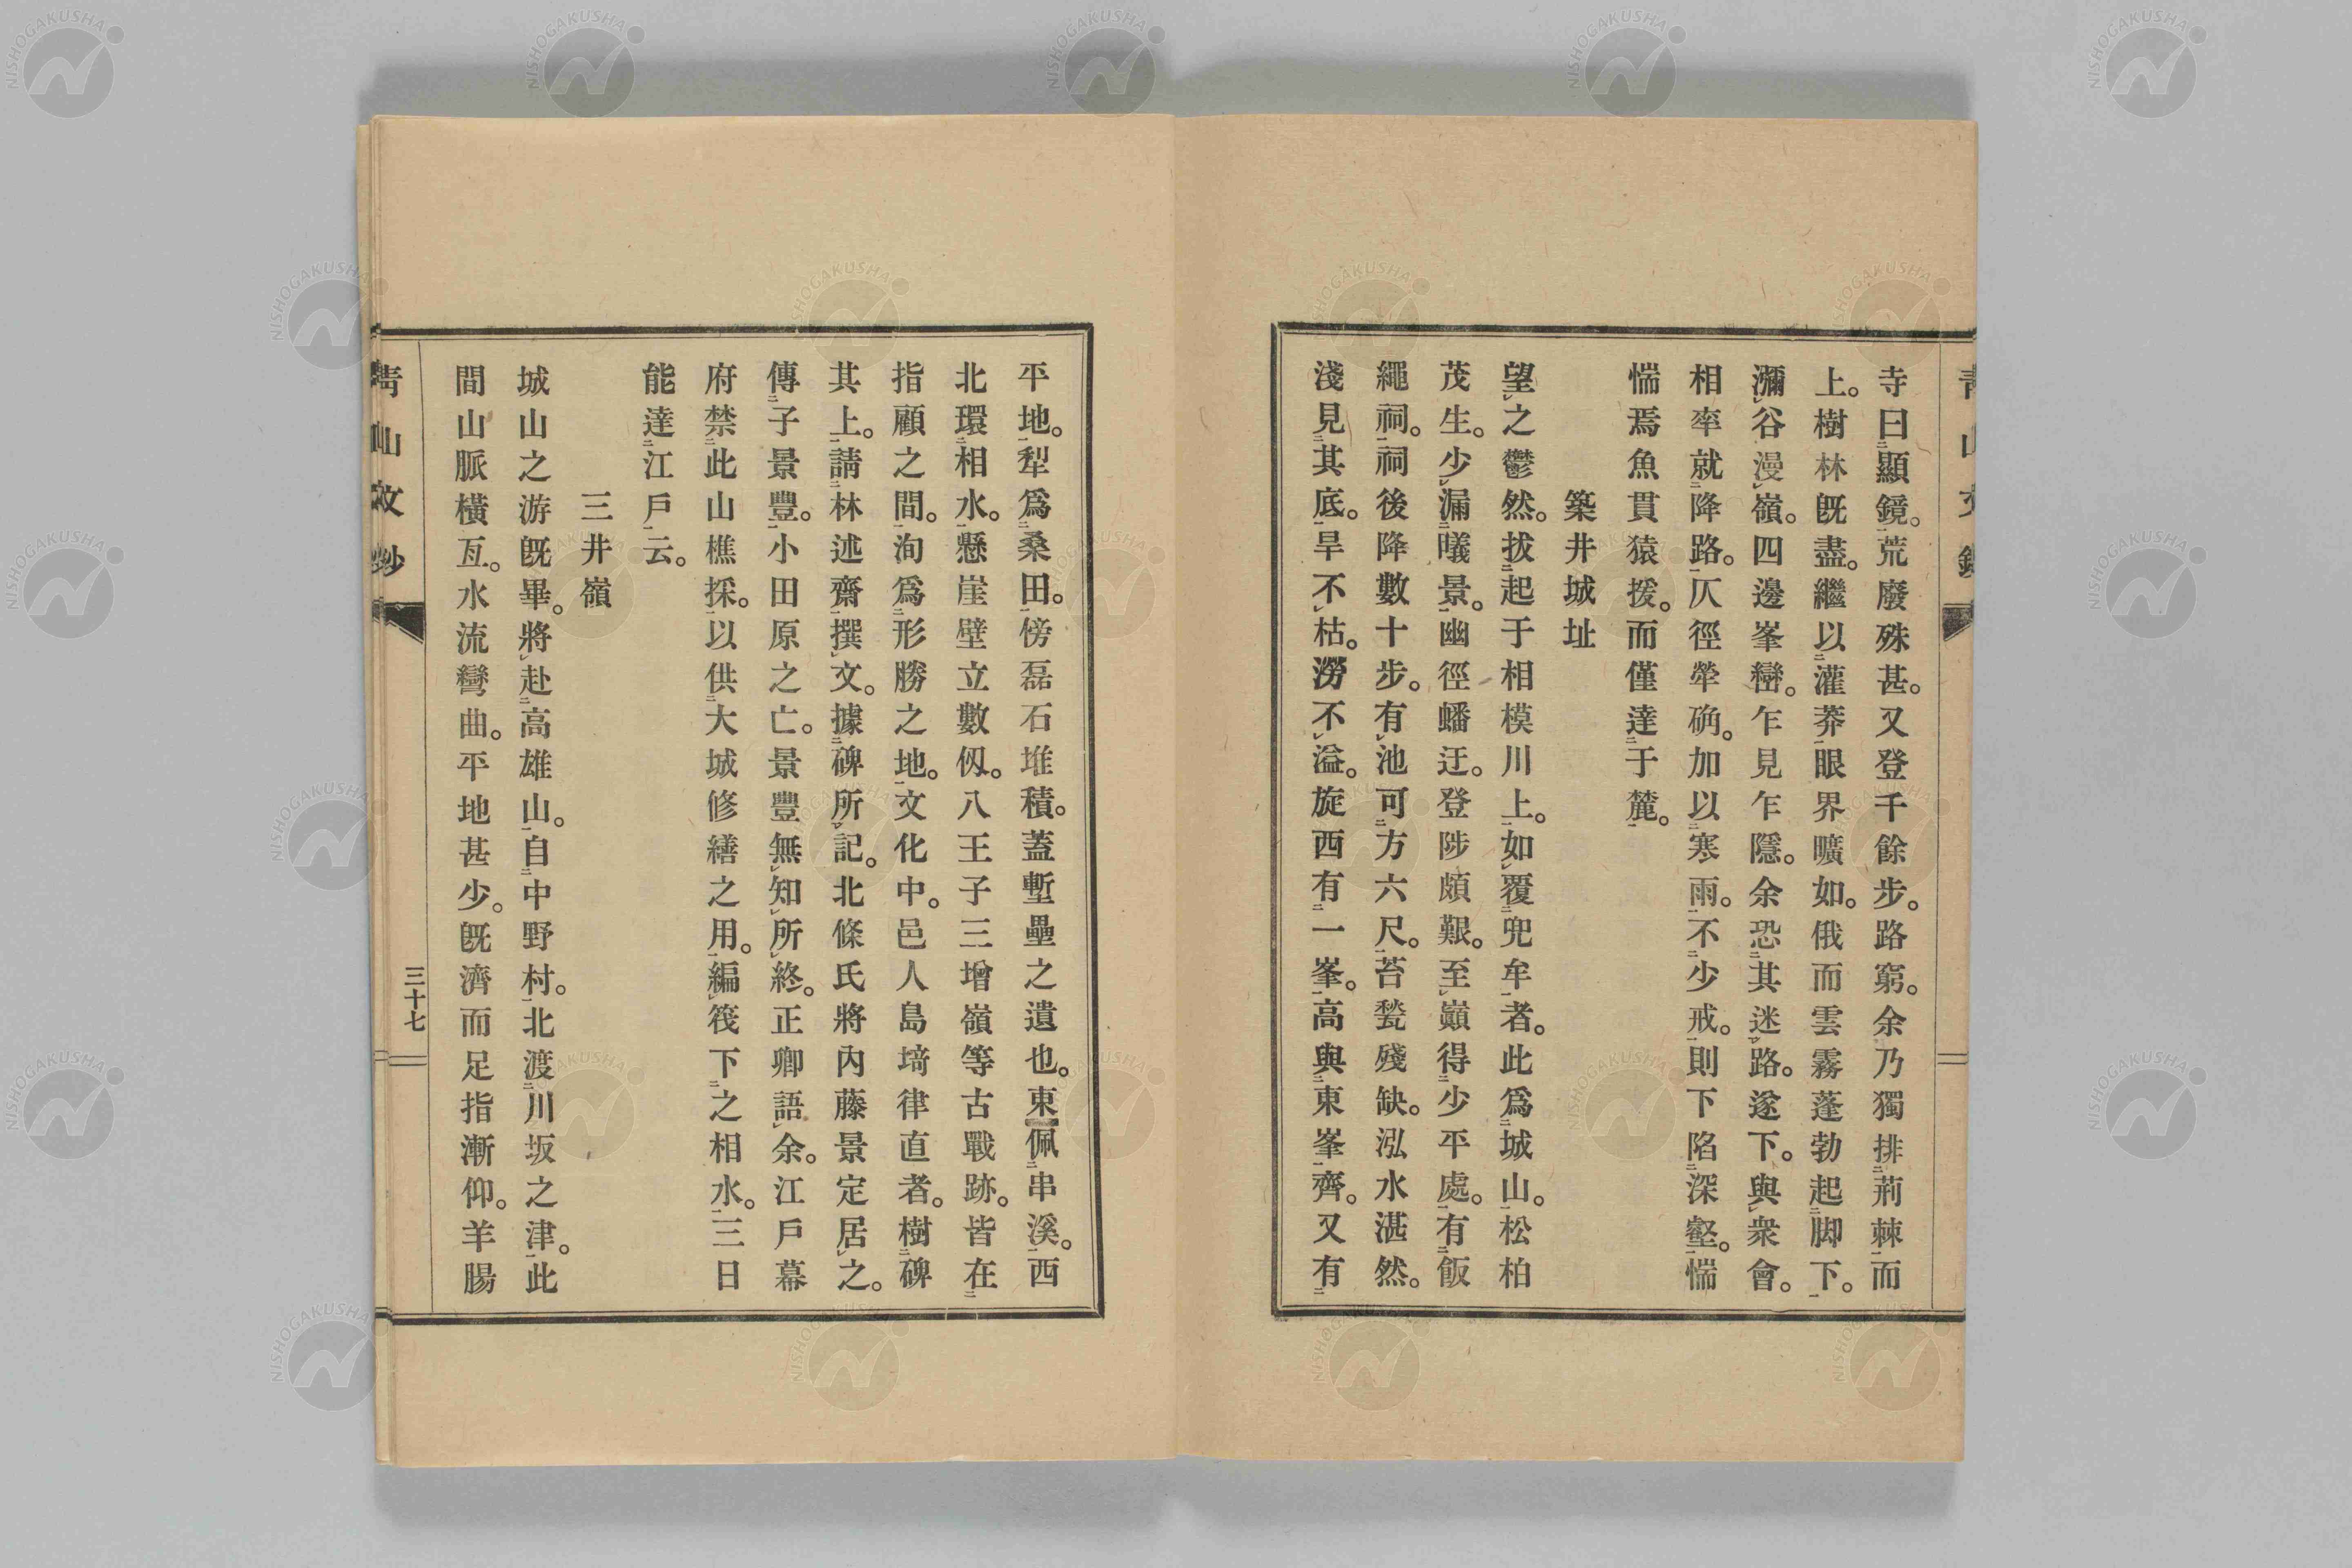 寺曰顯鏡。荒廢殊甚。又登千餘步。路窮。余乃獨排荊棘而
上。樹林既盡。繼以灌莽眼界曠如。俄而雲霧蓬勃起脚下。
瀰谷漫嶺。四邊峯巒。乍見乍隱。余恐其迷路。遂下。與衆會。
相率就降路。仄徑犖确。加以寒雨。不少戒。則下陷深壑。惴
惴焉魚貫猿援。而僅達于麓。
築井城址
望之鬱然。拔起于相模川上。如覆兜牟者。此爲城山。松柏
茂生。少漏曦景。幽徑蟠迂。登陟頗艱。至巓得少平處。有飯
繩祠。祠後降數十步。有池可方六尺。苔甃殘缺。泓水湛然。
淺見其底。旱不枯。澇不溢。旋西有一峯。高與東峯齊。又有
平地。犁爲桑田。傍磊石堆積。蓋塹壘之遺也。東佩串溪。西
北環相水。懸崖壁立數仭。八王子三增嶺等古戰跡。皆在
指顧之間。洵爲形勝之地。文化中。邑人島埼律直者。樹碑
其上。請林述齋撰文。據碑所記。北條氏將內藤景定居之。
傳子景豐。小田原之亡。景豐無知所終。正卿語余。江戶幕
府禁此山樵採。以供大城修繕之用。編筏下之相水。三日
能達江戶云。
三井嶺
城山之游既畢。將赴高雄山。自中野村。北渡川坂之津。此
間山脈橫亙。水流彎曲。平地甚少。既濟而足指漸仰。羊腸
靑山文鈔
三十七